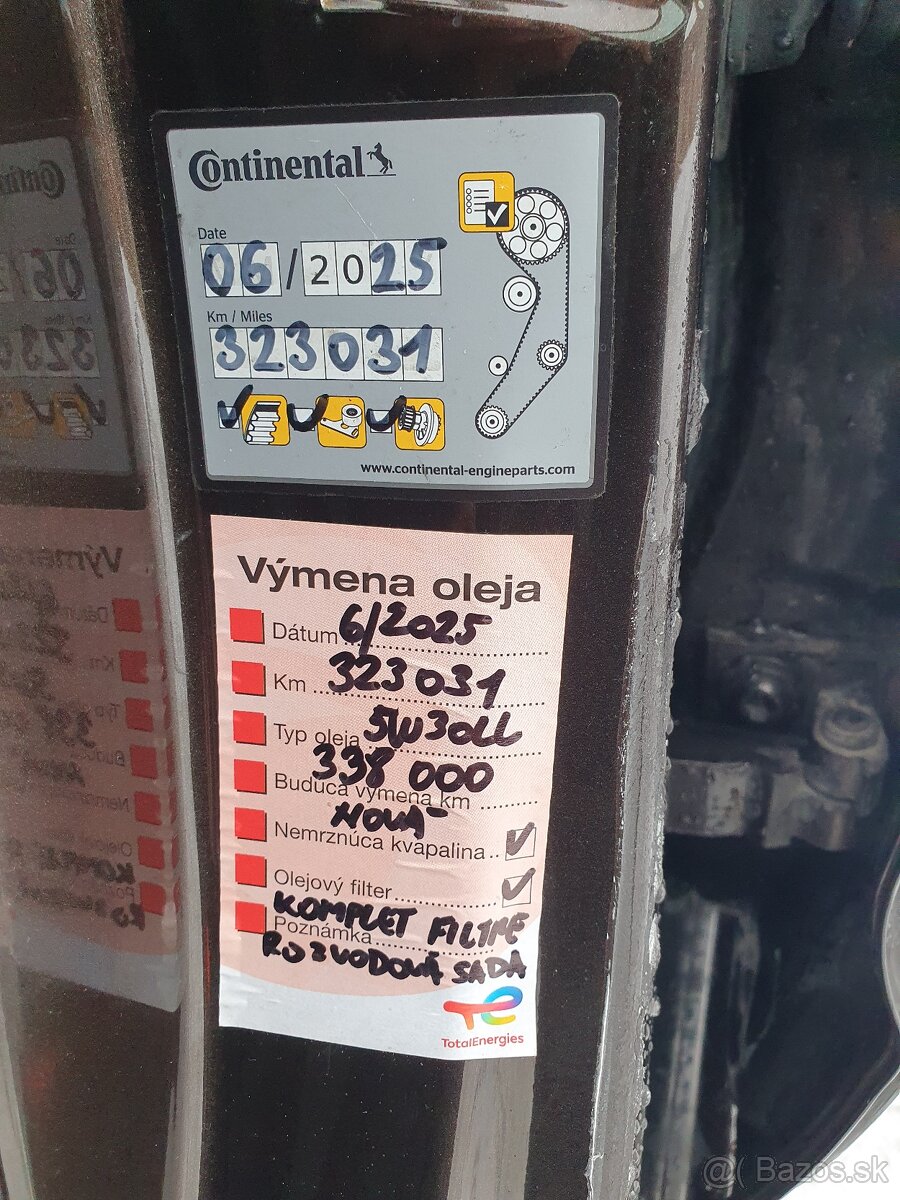 Continental
Date
06/2025
Km / Miles
323031
www.continental-engineparts.com
Výmena oleja
Dátum 6/2025
Km 323031
Typ oleja 5W30LL
338 000
Budúca výmena km
NOVÁ
Nemrznúca kvapalina
Olejový filter
KOMPLET FILTRE
Poznámka
ROZVODOVÁ SADA
TotalEnergies
@( Bazos.sk